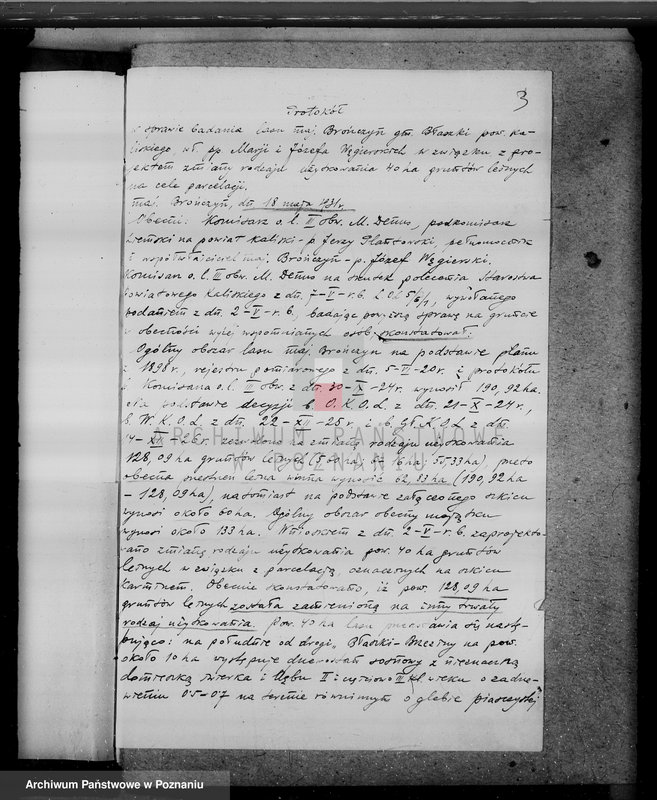 3
Protokół
w sprawie badania lasu maj. Brończyn gm. Błaszki pow. Ka-
liskiego, wł. pp. Marji i Józefa Węgierskich w związku z pro-
jektem zmiany rodzaju użytkowania 40 ha gruntów leśnych
na cele parcelacji.
Maj. Brończyn, dn. 18 maja 1931 r.
Obecni: Komisarz o. l. III obw. M. Demo, podkomisarz
ziemski na powiat Kaliski – p. Jerzy, pełnomocnik
i współwłaściciel maj. Brończyn – p. Józef Węgierski.
Komisarz o. l. III obw. M. Demo na skutek polecenia Starostwa
Powiatowego Kaliskiego z dn. 7–V–r. b., wywołanego
podaniem z dn. 2–V–r. b., badając powyższą sprawę na gruncie
w obecności wyżej wspomnianych osób, skonstatował:
Ogólny obszar lasu maj. Brończyn na podstawie planu
z 1898 r., rejestru pomiarowego z dn. 5–II–20 r. i protokółu
Komisarza o. l. III obw. z dn. 30–IX–24 r. wynosił 190,92 ha.
Na podstawie decyzji b. O. K. O. L. z dn. 21–X–24 r.,
b. W. K. O. L. z dn. 22–XII–25 r. i b. Gł. K. O. L. z dn.
4–XII–26 r. zezwolono na zmianę rodzaju użytkowania
128,09 ha gruntów leśnych, przeto
obecna przestrzeń leśna winna wynosić 62,83 ha (190,92 ha
– 128,09 ha), natomiast na podstawie załączonego szkicu
wynosi około 60 ha. Ogólny obszar obecny majątku
wynosi około 133 ha. Wnioskiem z dn. 2–V–r. b. zaprojekto-
wano zmianę rodzaju użytkowania pow. 40 ha gruntów
leśnych w związku z parcelacją, oznaczonych na szkicu
karminem. Obecnie skonstatowano, iż pow. 128,09 ha
gruntów leśnych została zamienioną na inny trwały
rodzaj użytkowania. Pow. 40 ha lasu przedstawia się nastę-
pująco: na południe od drogi Błaszki–Brzeziny na pow.
około 10 ha występuje drzewostan sosnowy z nieznaczną
domieszką świerka i dębu II i częściowo III kl. wieku o zadrze-
wieniu 05–07 na terenie równinnym o glebie piaszczystej
ARCHIWUM PAŃSTWOWE
W POZNANIU
Archiwum Państwowe w Poznaniu